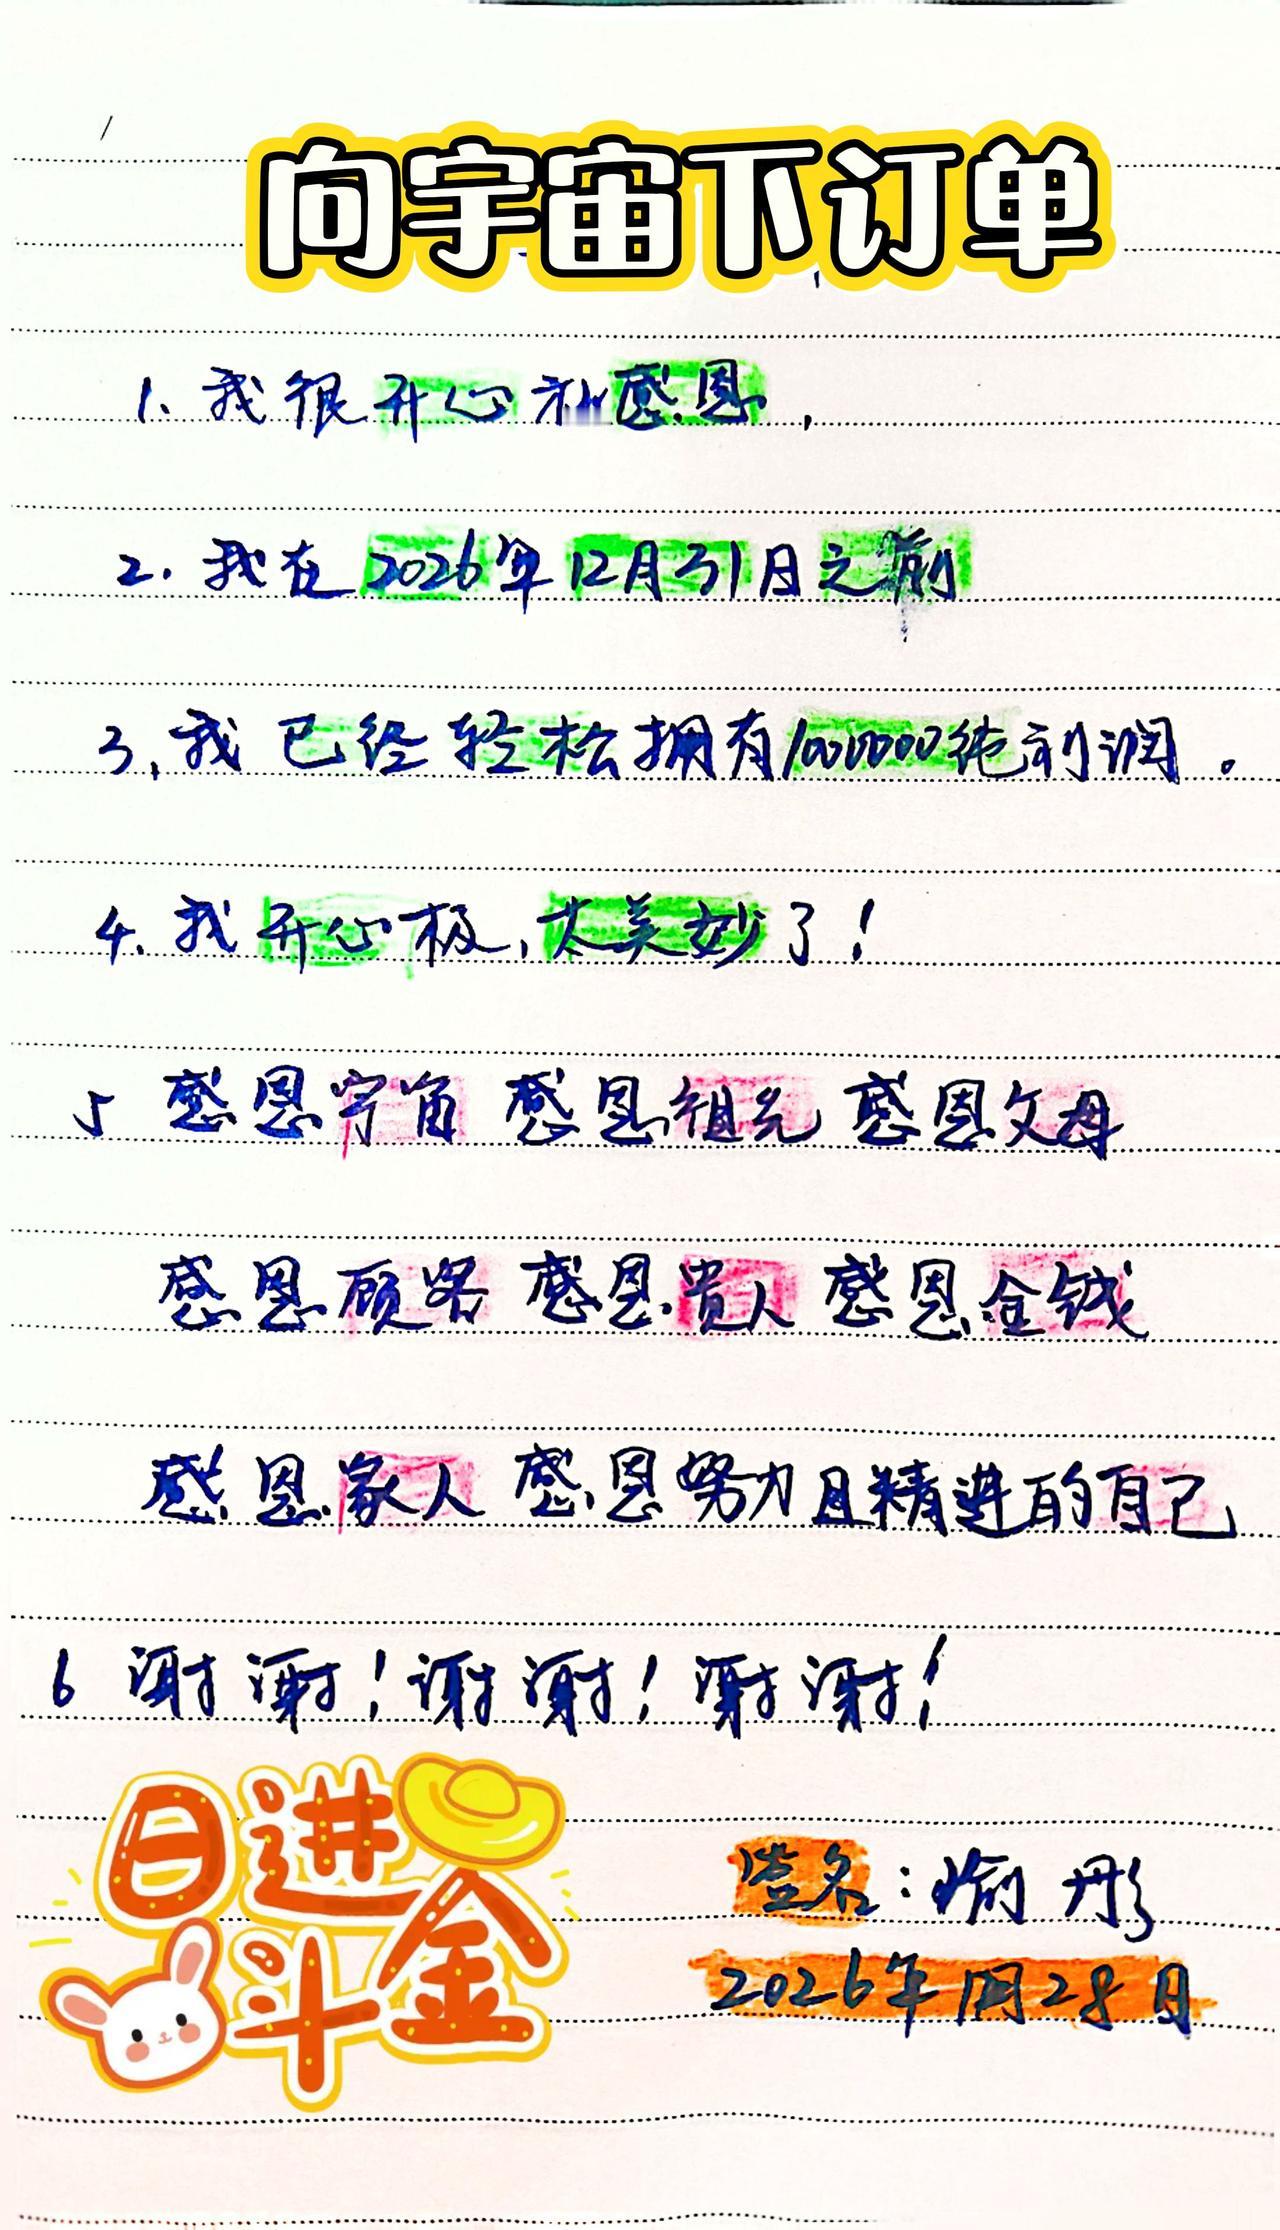 向宇宙下订单
1. 我很开心和感恩，
2. 我在2026年12月31日之前
3，我已经轻松拥有1000000纯利润。
4. 我开心极，太美妙了！
5 感恩宇宙 感恩祖先 感恩父母
感恩顾客 感恩贵人 感恩金钱
感恩家人 感恩努力且精进的自己
6 谢谢！谢谢！谢谢！
日进
斗金
签名：喻彤
2026年1月28日